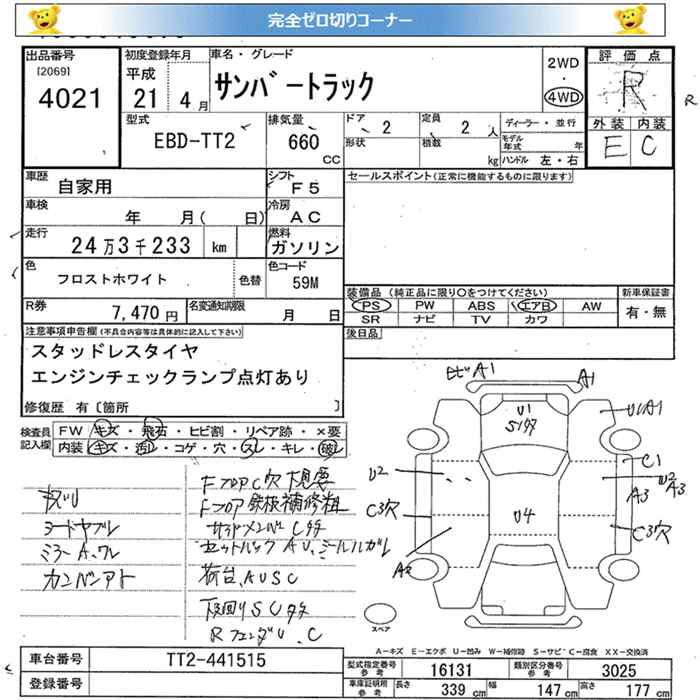 完全ゼロ切りコーナー
出品番号
[2069]
4021
初度登録年月
平成
21 4 月
車名・グレード
サンバートラック
2WD
・
4WD
評価点
R
R
外装 内装
E C
型式
EBD-TT2
排気量
660
CC
ドア 2
形状
定員 2 人
積載 kg
ディーラー・並行
モデル年式 年
ハンドル 左・右
車歴
自家用
シフト
F5
車検
年 月( 日)
冷房
AC
走行
24万3千233 km
燃料
ガソリン
色
フロストホワイト
色替
色コード
59M
R券
7,470円
名変通知期限
月 日
セールスポイント(正常に機能するものに限ります)
装備品 (純正品に限り〇をつけてください)
PS PW ABS エアB AW
SR ナビ TV カワ
新車保証書
有・無
後日品
注意事項申告欄(不具合内容等は具体的に記入して下さい)
スタッドレスタイヤ
エンジンチェックランプ点灯あり
修復歴 有〔箇所 〕
検査員記入欄
FW キズ・飛石・ヒビ割・リペア跡・×要
内装 キズ・汚レ・コゲ・穴・スレ・キレ・破レ
ミラーA、ワレ
FフロアC穴 下見要
Fフロア 鉄板補修粗
サイドメンバーCサビ
荷台、AUSC
下回りSCサビ
RフェンダU、C
ヒビA1
A1
U1
U1A1
U2
C1
U2
A3
A3
C3穴
U4
C3穴
A2
スペア
A-キズ E-エクボ U-凹み W-補修跡 S-サビ C-腐食 XX-交換済
車台番号
TT2-441515
登録番号
型式指定番号
参考
16131
類別区分番号
参考
3025
車庫証明所
参考
長さ 339 cm
幅 147 cm
高さ 177 cm